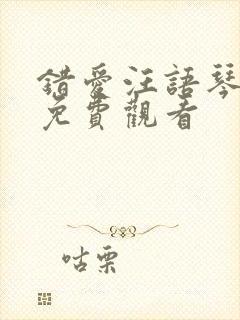 錯愛汪語琴
免費觀看
咕栗